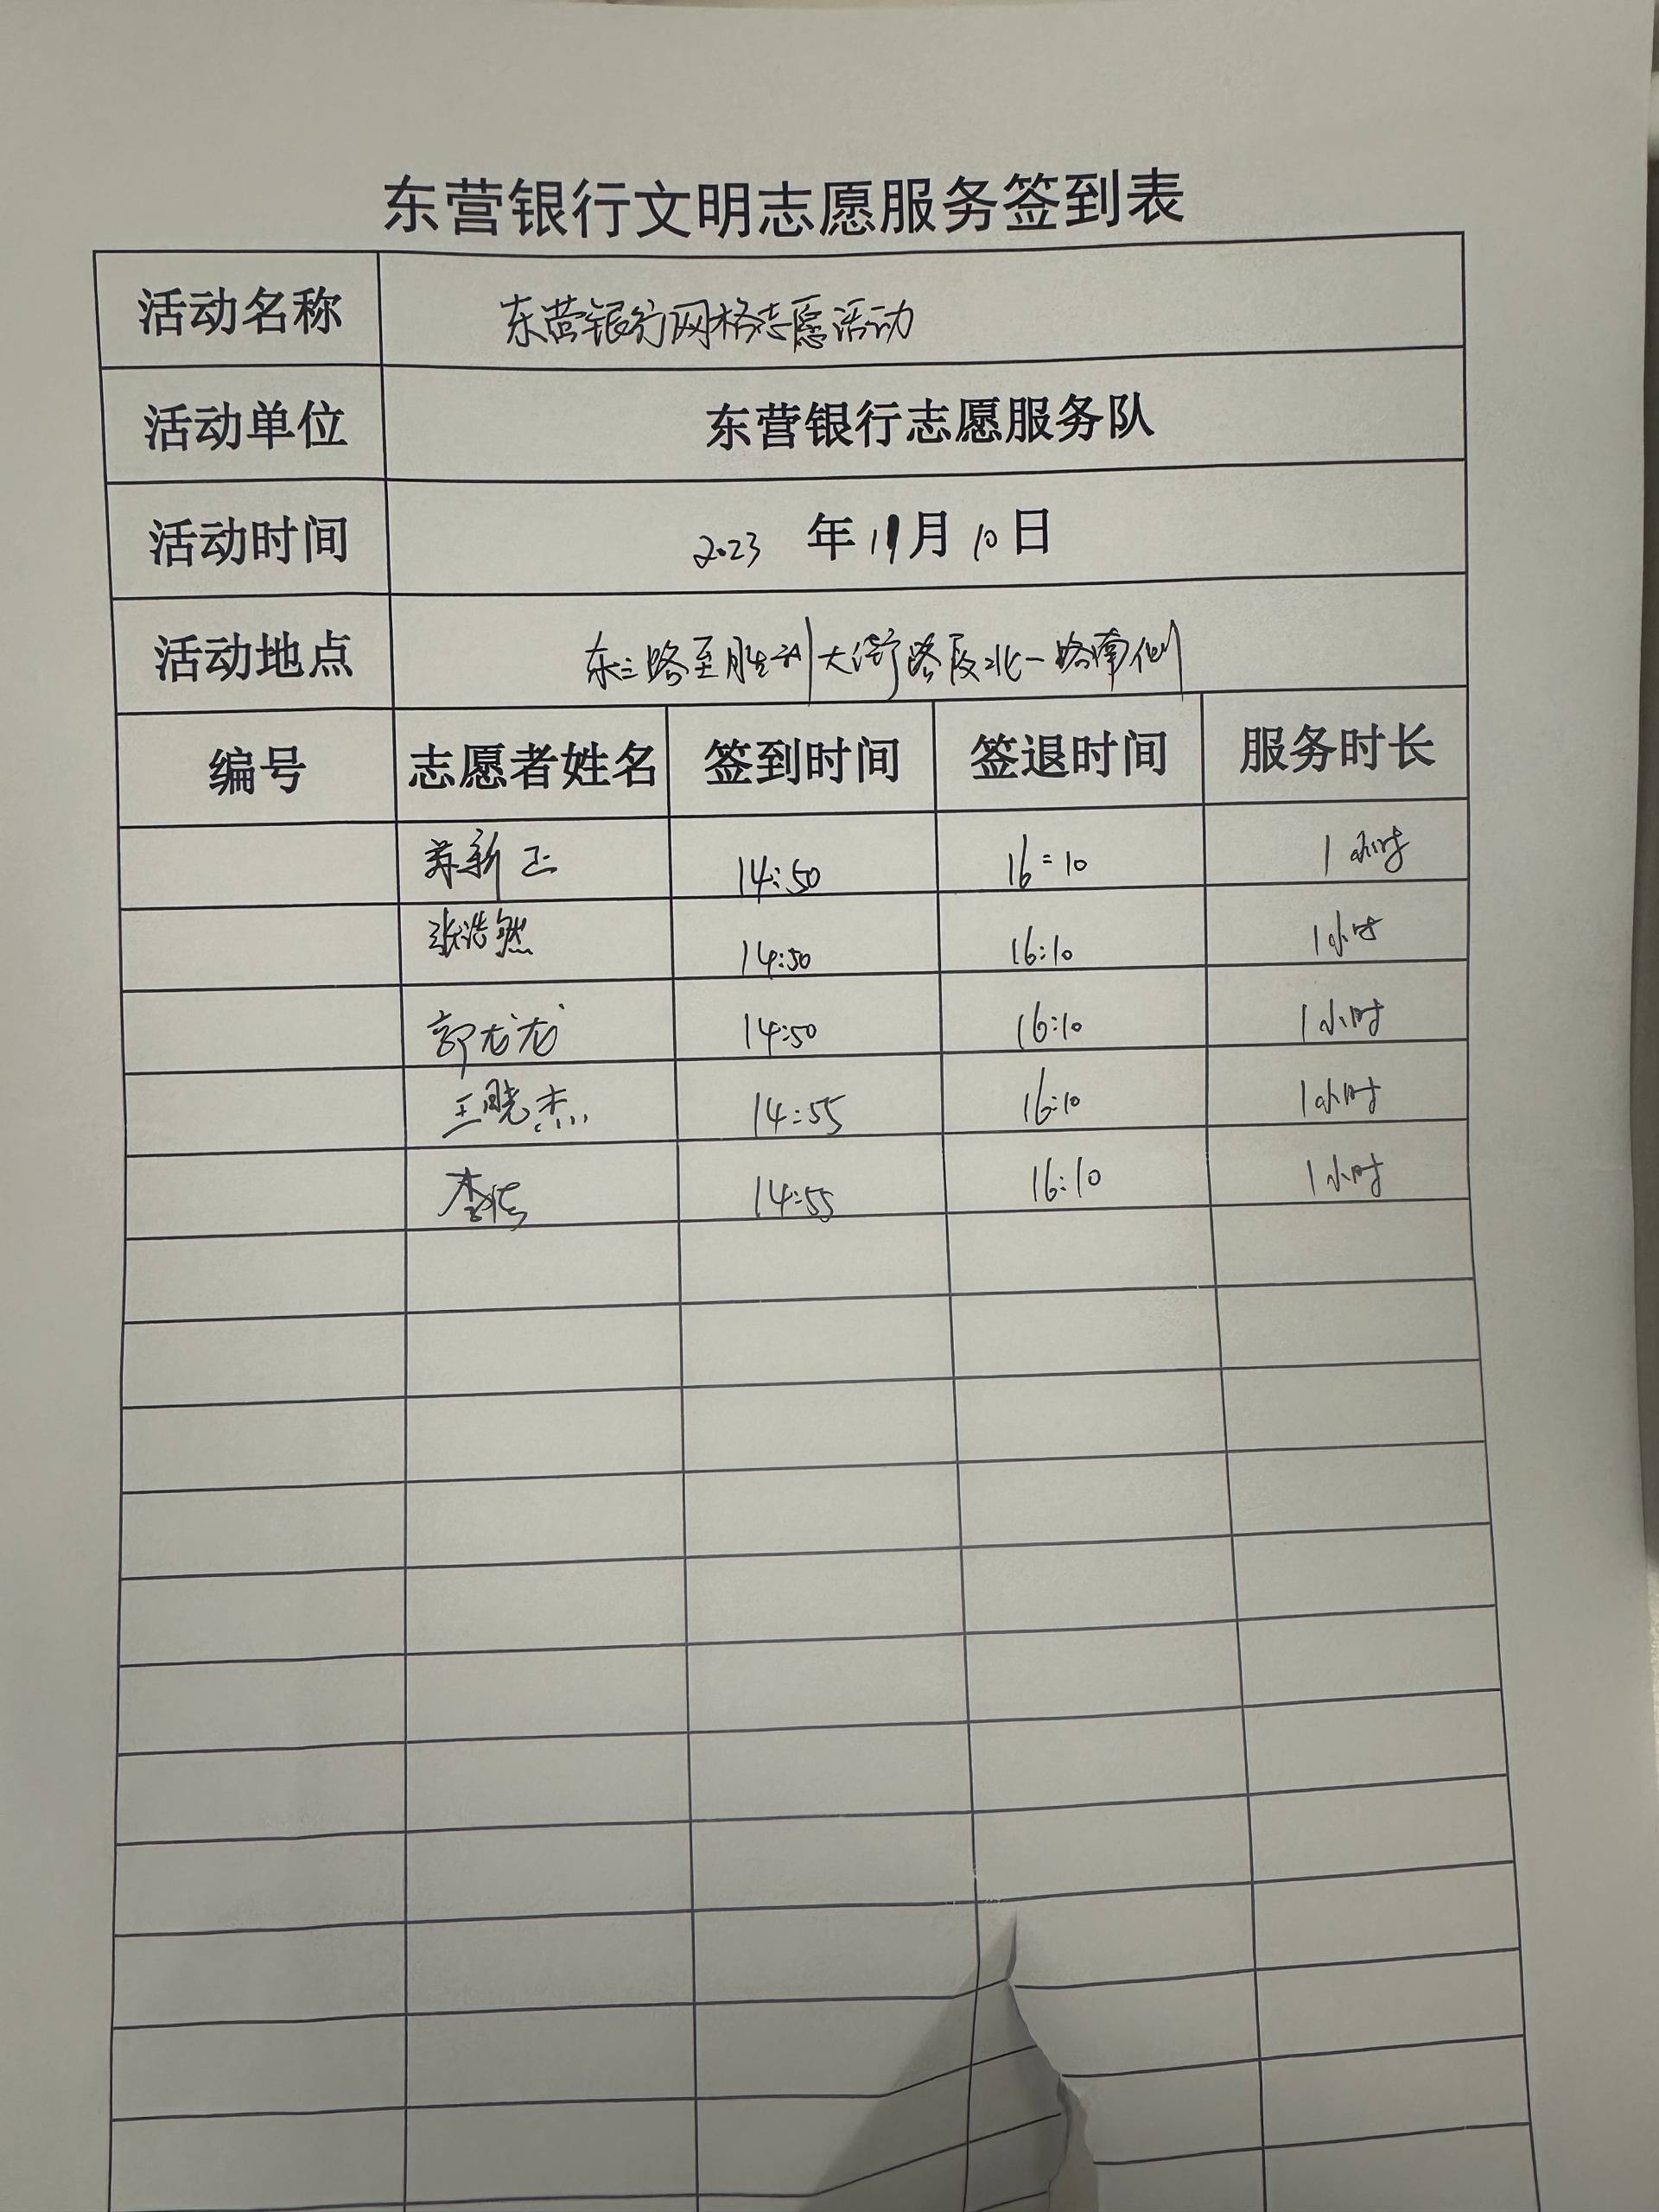 东营银行文明志愿服务签到表
活动名称 东营银行网格志愿活动
活动单位 东营银行志愿服务队
活动时间 2023 年 11 月 10 日
活动地点 东三路至胜利大街路段北一路南侧
编号 志愿者姓名 签到时间 签退时间 服务时长
苏新正 14:50 16:10 1小时
张浩然 14:50 16:10 1小时
郭龙龙 14:50 16:10 1小时
王晓杰 14:55 16:10 1小时
李 14:55 16:10 1小时